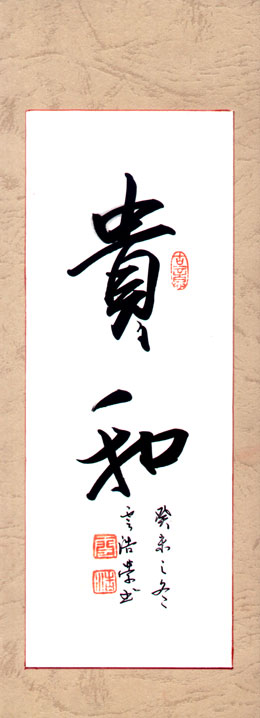 貴和
癸未之冬
雲浩堂书